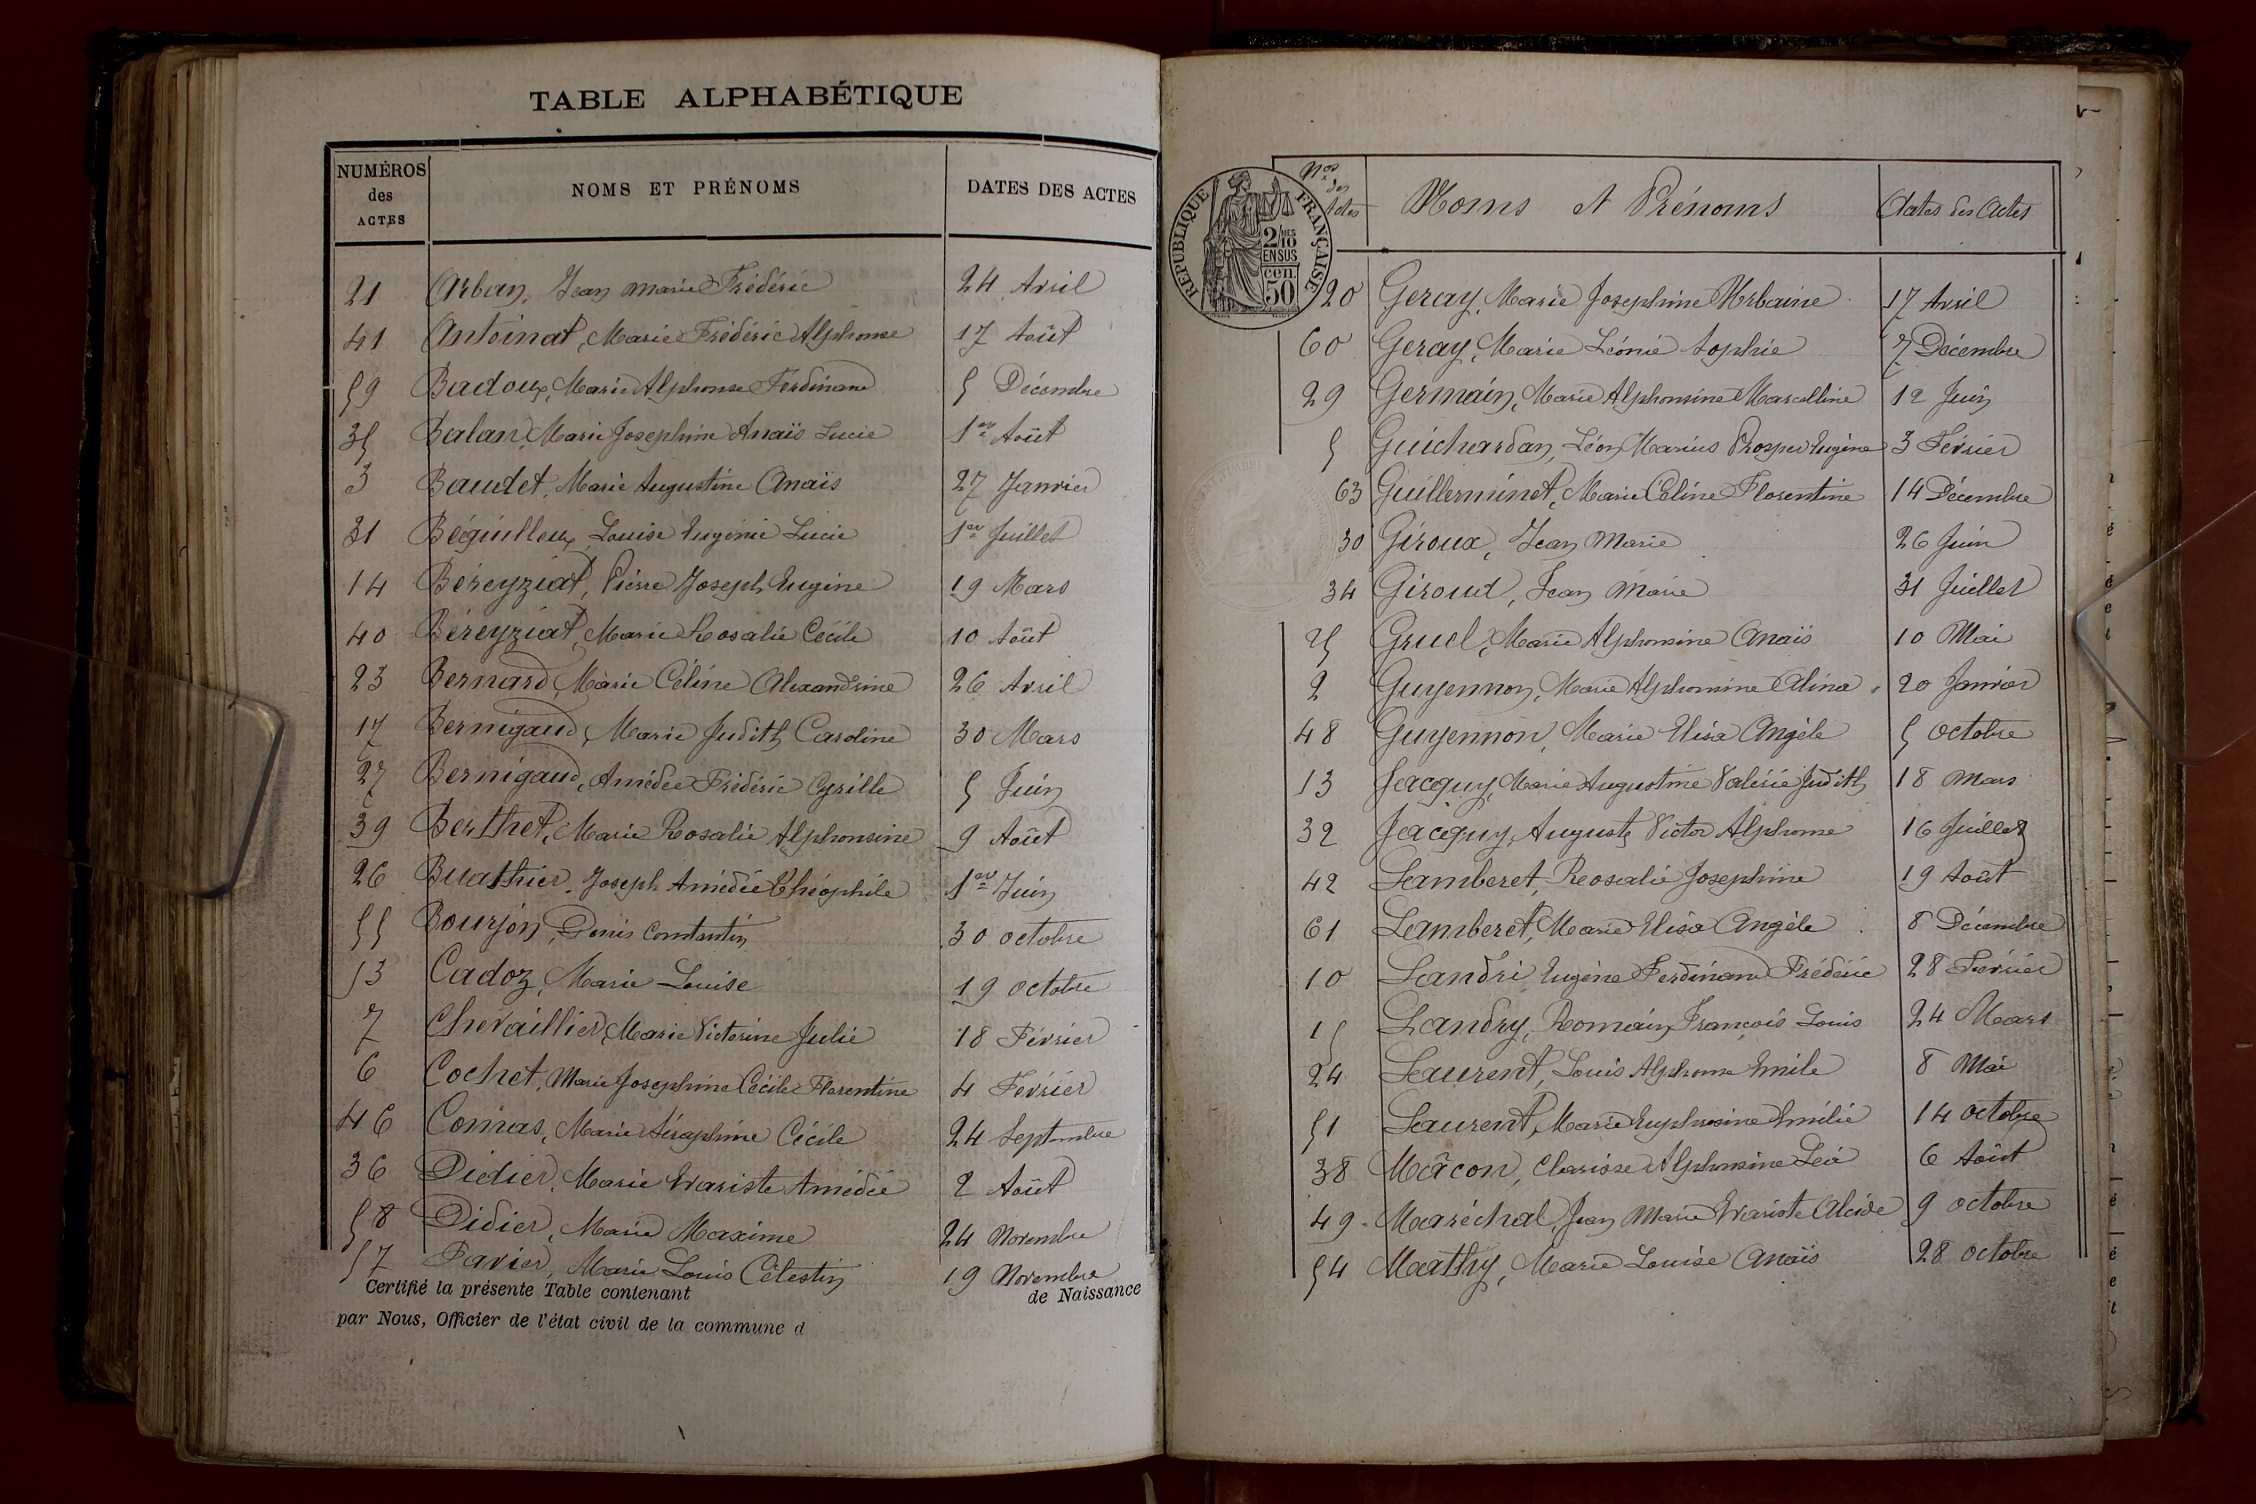 TABLE ALPHABÉTIQUE
NUMÉROS des ACTES NOMS ET PRÉNOMS DATES DES ACTES
21 Arban, Jean Marie Frédéric 24 Avril
41 Antoinat, Marie Frédéric Alphonse 17 Août
59 Badoux, Marie Alphonse Ferdinand 5 Décembre
35 Balan, Marie Joséphine Anaïs Lucie 1er Août
3 Baudet, Marie Augustine Anaïs 27 Janvier
31 Béguilleux, Louise Eugénie Lucie 1er Juillet
14 Béreyziat, Pierre Joseph Eugène 19 Mars
40 Béreyziat, Marie Rosalie Cécile 10 Août
23 Bernard, Marie Céline Alexandrine 26 Avril
17 Bernigaud, Marie Judith Caroline 30 Mars
27 Bernigaud, Amédée Frédéric Cyrille 5 Juin
39 Berthet, Marie Rosalie Alphonsine 9 Août
26 Buathier, Joseph Amédée Théophile 1er Juin
55 Bourjon, Denis Constantin 30 octobre
53 Cadoz, Marie Louise 19 octobre
7 Chevaillier, Marie Victorine Julie 18 Février
6 Cochet, Marie Joséphine Cécile Florentine 4 Février
46 Comas, Marie Séraphine Cécile 24 Septembre
36 Didier, Marie Evariste Amédée 2 Août
58 Didier, Marie Maxime 24 Novembre
57 Favier, Marie Louis Célestin 19 Novembre
Certifié la présente Table contenant de Naissance
par Nous, Officier de l'état civil de la commune d
RÉPUBLIQUE FRANÇAISE
2/10 MES
EN SUS
50 cen.
Nos des Actes Noms et Prénoms Dates des Actes
20 Geray, Marie Joséphine Urbaine 17 Avril
60 Geray, Marie Léonie Sophie 7 Décembre
29 Germain, Marie Alphonsine Marcelline 12 Juin
5 Guichardan, Léon Marius Prosper Eugène 3 Février
63 Guillerminet, Marie Céline Florentine 14 Décembre
30 Giroux, Jean Marie 26 Juin
34 Giroud, Jean Marie 31 Juillet
25 Gruel, Marie Alphonsine Anaïs 10 Mai
2 Guyennon, Marie Alphonsine Alina 20 Janvier
48 Guyennon, Marie Elisa Angèle 5 octobre
13 Jacquy, Marie Augustine Valérie Judith 18 Mars
32 Jacquy, Auguste Victor Alphonse 16 Juillet
42 Lamberet, Rosalie Joséphine 19 Août
61 Lamberet, Marie Elisa Angèle 8 Décembre
10 Landri, Eugène Ferdinand Frédéric 28 Février
15 Landry, Romain François Louis 24 Mars
24 Laurent, Louis Alphonse Emile 8 Mai
51 Laurent, Marie Euphrosine Emélie 14 octobre
38 Mâcon, Clarisse Alphonsine Léa 6 Août
49 Maréchal, Jean Marie Evariste Alcide 9 octobre
54 Mathy, Marie Louise Anaïs 28 octobre